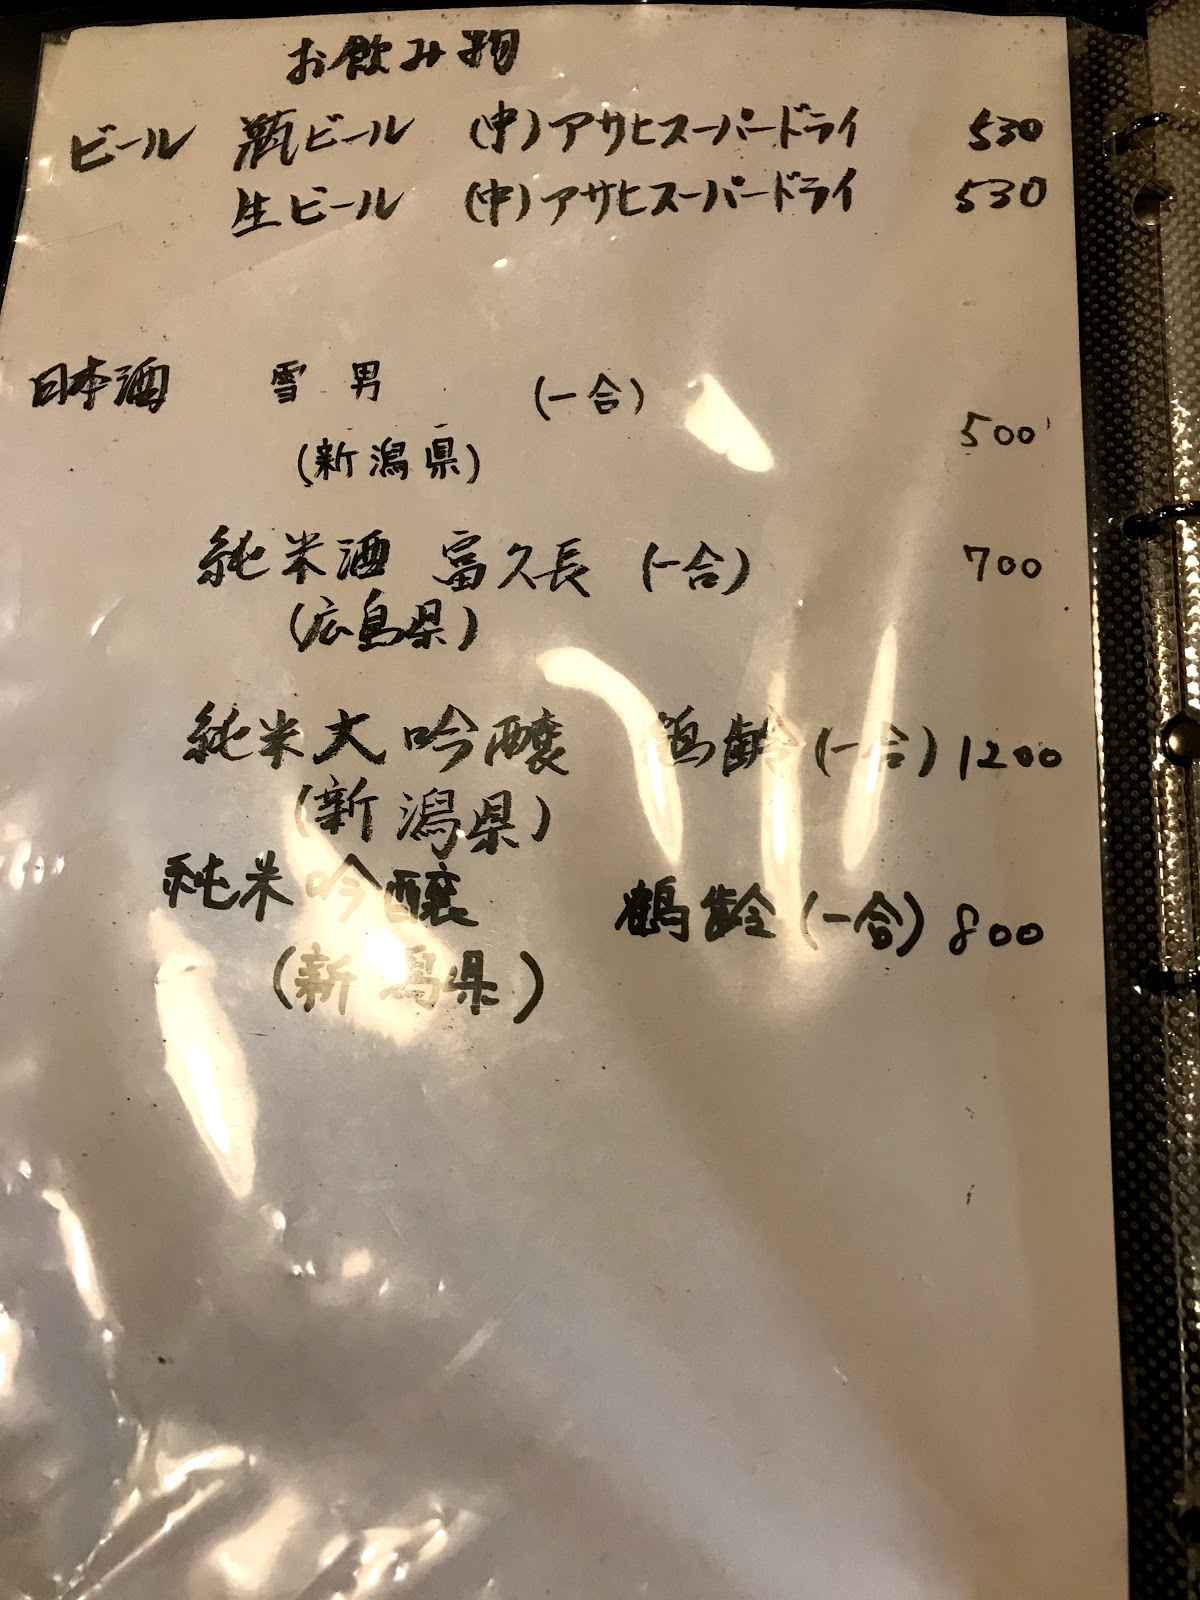 お飲み物
ビール 瓶ビール (中)アサヒスーパードライ 530
生ビール (中)アサヒスーパードライ 530
日本酒 雪男 (一合)
500
(新潟県)
純米酒 富久長 (一合) 700
(広島県)
純米大吟醸 鶴齢 (一合) 1200
(新潟県)
純米吟醸 鶴齢 (一合) 800
(新潟県)